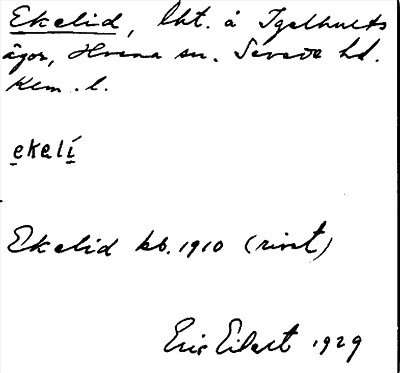 Ekelid, lht. å Igelhults
ägor, Hvena sn. Sevede hd.
Klm. l.
ekelí
Ekelid kb. 1910 (rivet)
Eric Eilert 1929